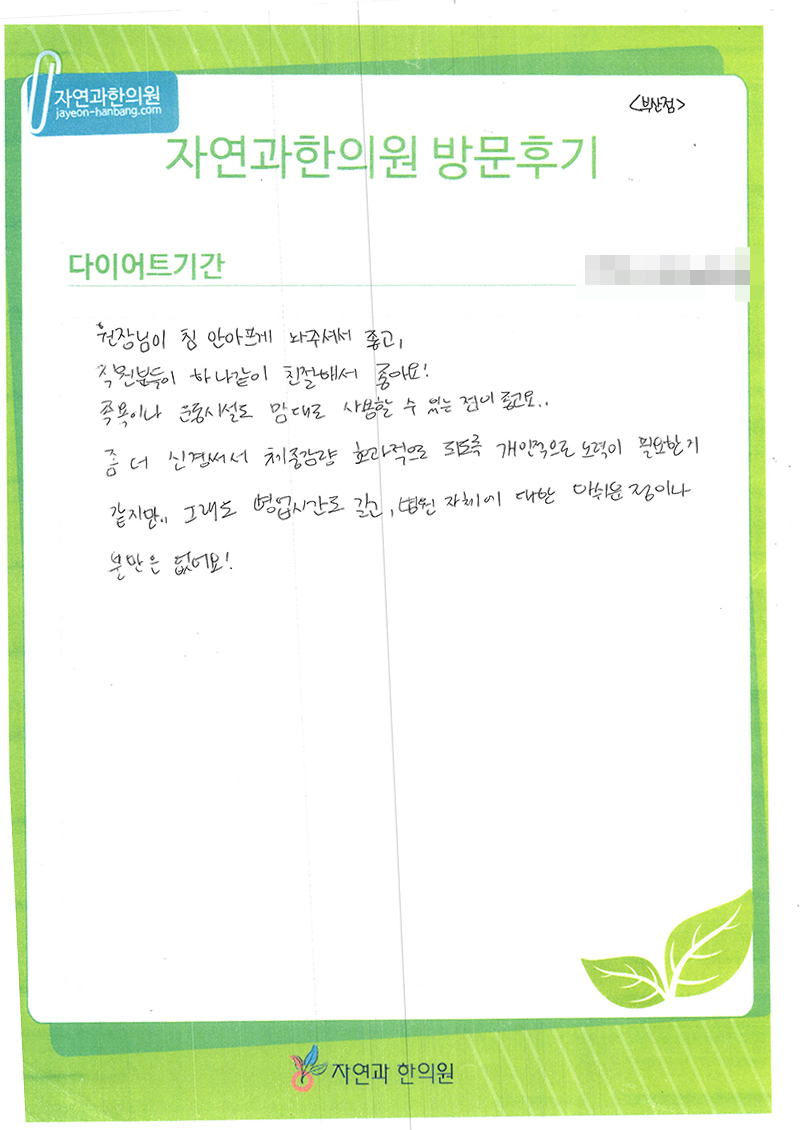 자연과한의원
jayeon-hanbang.com
<부산점>
자연과한의원 방문후기
다이어트기간
원장님이 침 안아프게 놔주셔서 좋고,
직원분들이 하나같이 친절해서 좋아요!
족욕이나 운동시설도 맘대로 사용할 수 있는 점이 좋고요..
좀 더 신경써서 체중감량 효과적으로 되도록 개인적으로 노력이 필요한거
같지만.. 그래도 영업시간도 길고, 병원 자체에 대한 아쉬운 점이나
불만은 없어요!
자연과 한의원